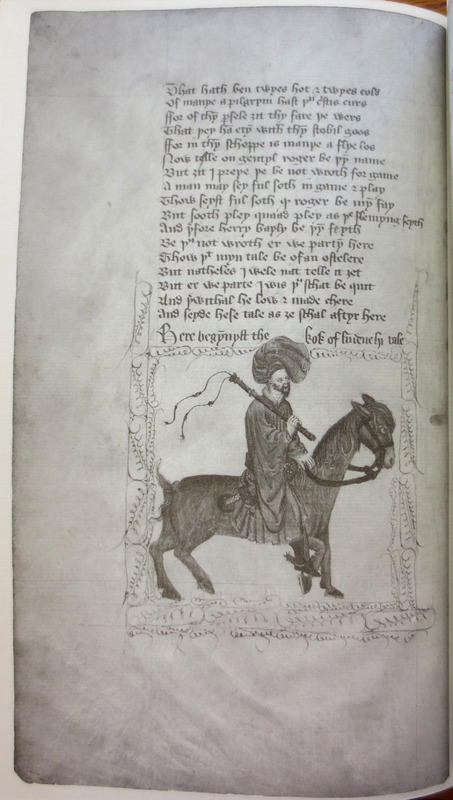 That hath ben twyes hot & twyes cold
Of manye a pilgrym hast yu cristis curs
ffor of thy persele zit thy fare ye wers
That yey ha etyn with thy stobil goos
ffor in thy schoppe is manye a flye los
Now telle on gentyl roger be yy name
But zit I preye ye be not wroth for game
A man may sey ful soth in game & pley
Thow seyst ful soth qd roger be my fay
But sooth pley quaad pley as ye flemyng seyth
And yfore herry bayly be yy feyth
Be yu not wroth er we party here
Thow yt myn tale be of an ostelere
But natheles I wele nat telle it zet
But er we parte I wis yu schat be quit
And yrwithal he low & made chere
And seyde hese tale as ze schal aftyr here
Here begynyth the kok of tale